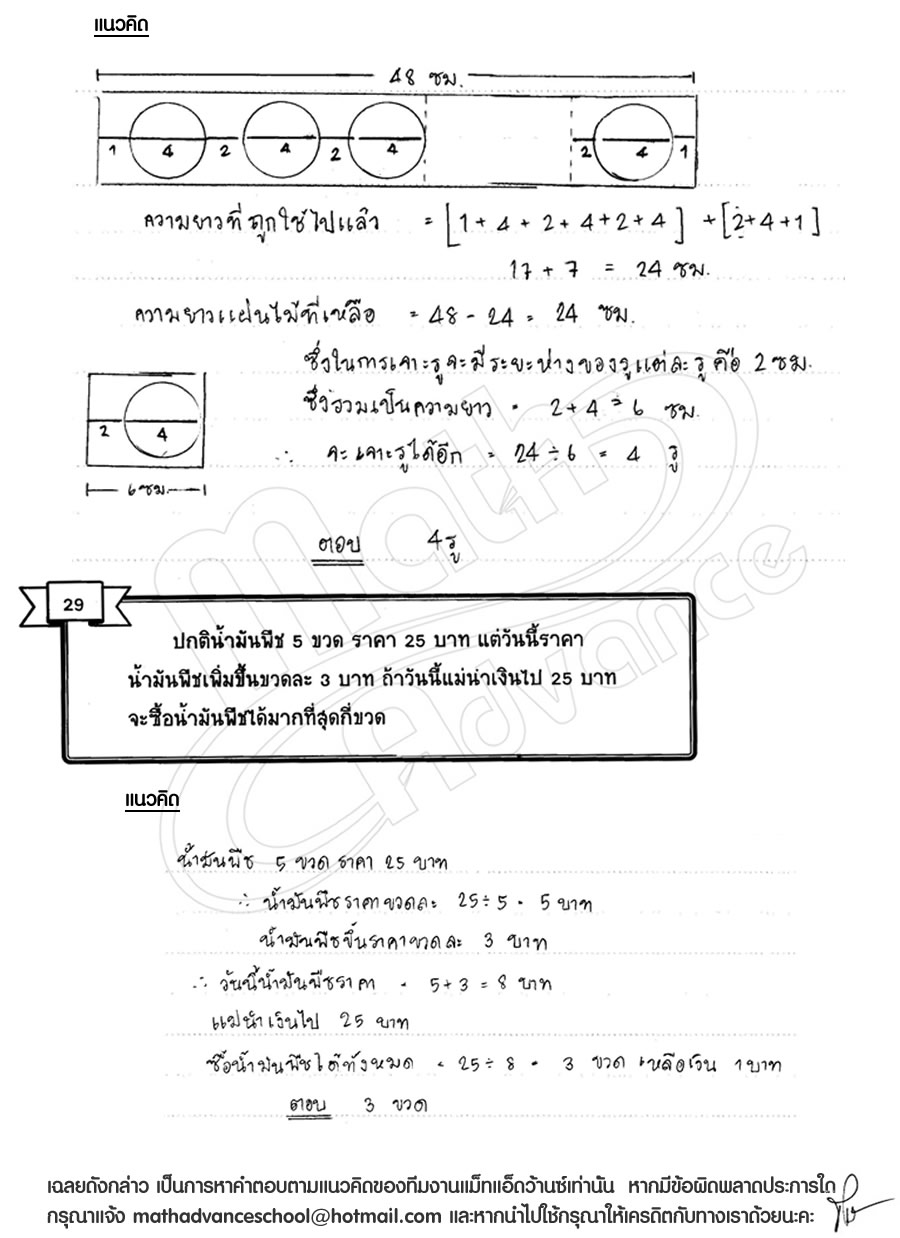 แนวคิด
48 ซม.
1 4 2 4 2 4 2 4 1
ความยาวที่ถูกใช้ไปแล้ว = [1 + 4 + 2 + 4 + 2 + 4] + [2 + 4 + 1]
17 + 7 = 24 ซม.
ความยาวแผ่นไม้ที่เหลือ = 48 - 24 = 24 ซม.
ซึ่งในการเจาะรูจะมีระยะห่างของรูแต่ละรู คือ 2 ซม.
ซึ่งรวมเป็นความยาว = 2 + 4 = 6 ซม.
2 4
∴ จะเจาะรูได้อีก = 24 ÷ 6 = 4 รู
6 ซม.
ตอบ 4 รู
Math Advance
29
ปกติน้ำมันพืช 5 ขวด ราคา 25 บาท แต่วันนี้ราคา
น้ำมันพืชเพิ่มขึ้นขวดละ 3 บาท ถ้าวันนี้แม่นำเงินไป 25 บาท
จะซื้อน้ำมันพืชได้มากที่สุดกี่ขวด
แนวคิด
น้ำมันพืช 5 ขวด ราคา 25 บาท
∴ น้ำมันพืชราคาขวดละ 25 ÷ 5 = 5 บาท
น้ำมันพืชขึ้นราคาขวดละ 3 บาท
∴ วันนี้น้ำมันพืชราคา = 5 + 3 = 8 บาท
แม่นำเงินไป 25 บาท
ซื้อน้ำมันพืชได้ทั้งหมด = 25 ÷ 8 = 3 ขวด เหลือเงิน 1 บาท
ตอบ 3 ขวด
เฉลยดังกล่าว เป็นการหาคำตอบตามแนวคิดของทีมงานแม็ทแอ็ดว้านซ์เท่านั้น หากมีข้อผิดพลาดประการใด
กรุณาแจ้ง mathadvanceschool@hotmail.com และหากนำไปใช้กรุณาให้เครดิตกับทางเราด้วยนะคะ